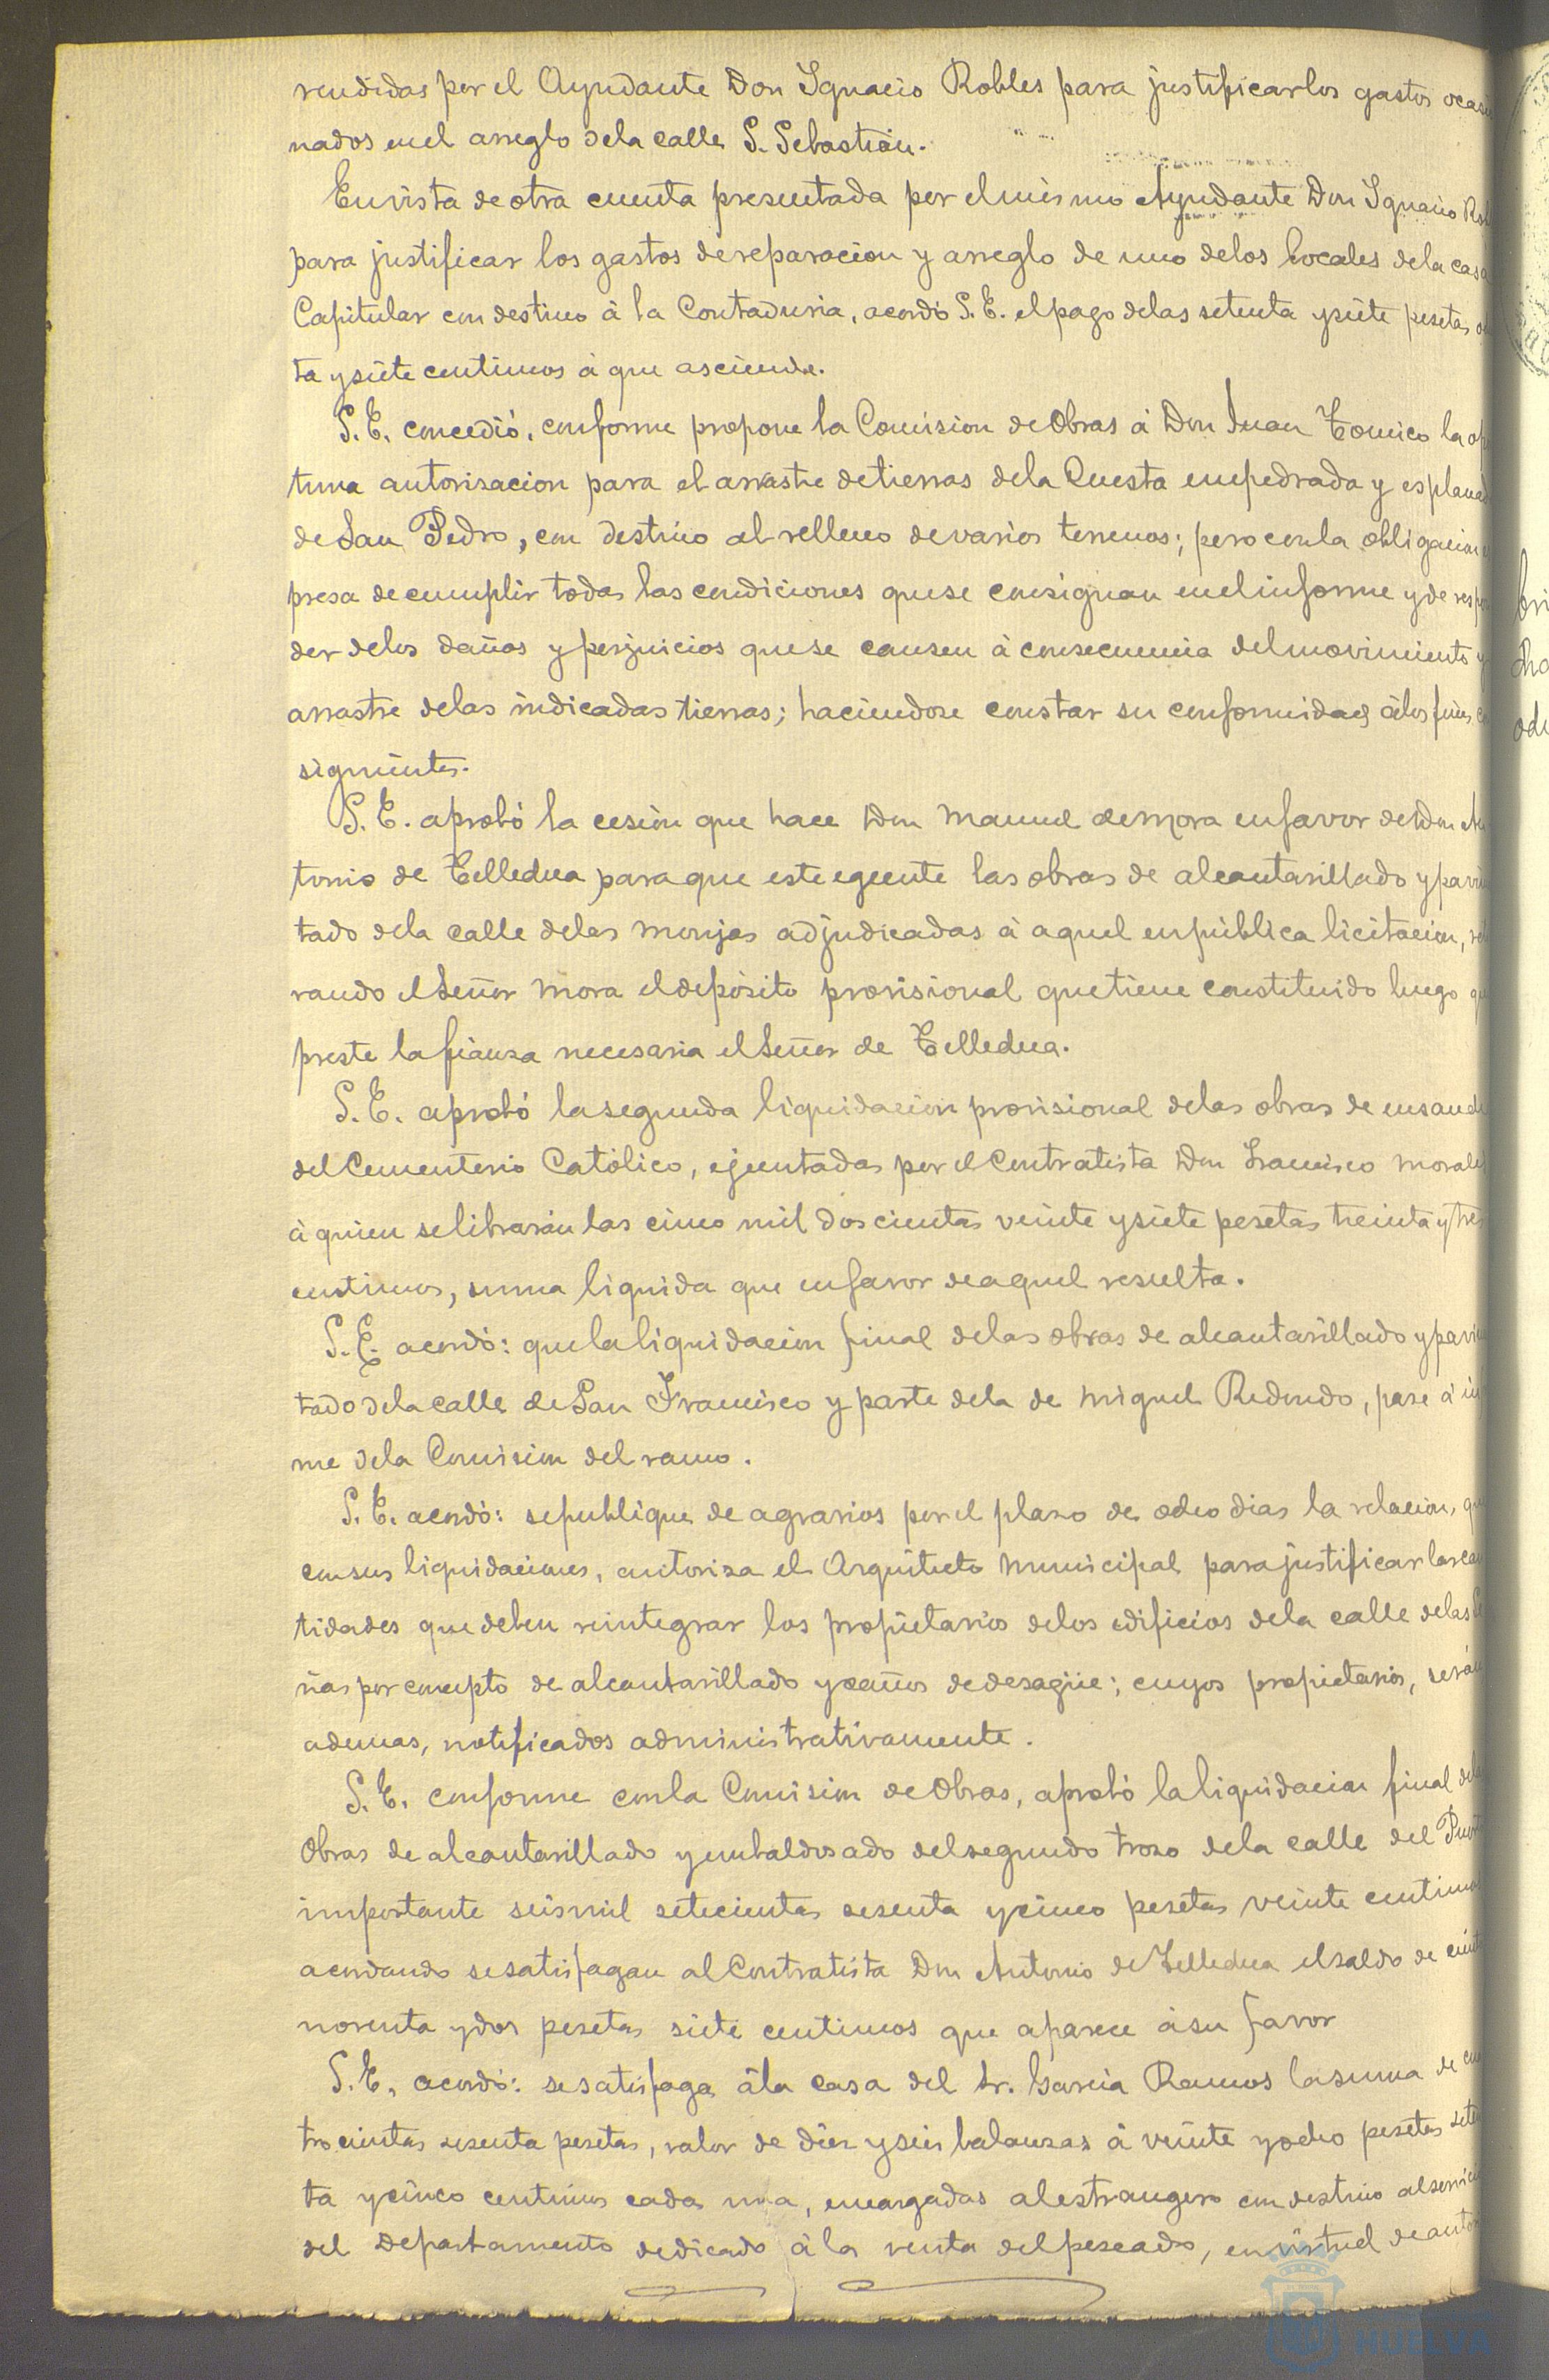 rendidas por el Ayudante Don Ygnacio Robles para justificar los gastos ocasio
nados en el arreglo de la calle S. Sebastián.
En vista de otra cuenta presentada por el mismo Ayudante Don Ygnacio Rob
para justificar los gastos de reparacion y arreglo de uno de los locales de la casa
Capitular con destino á la Contaduria, acordó S. E. el pago de las setenta y siete pesetas
ta y siete centimos á que asciende.
S. E. concedió, conforme propone la Comision de Obras á Don Juan Tomico la op
tuna autorisacion para el arrastre de tierras de la Cuesta empedrada y esplanad
de San Pedro, con destino al relleno de varios terrenos; pero con la obligacion
presa de cumplir todas las condiciones que se consignan en el informe y de respon
der de los daños y perjuicios que se causen á consecuencia del movimiento y
arrastre de las indicadas tierras; haciendose constar su conformidad á los fines con
siguientes.
S. E. aprobó la cesión que hace Don Manuel de Mora en favor de Don An
tonio de Tellechea para que este egecute las obras de alcantarillado y pavi
tado de la calle de las Monjas adjudicadas á aquel en pública licitacion, reti
rando el Señor Mora el depósito provisional que tiene constituido luego que
preste la fianza necesaria el Señor de Tellechea.
S. E. aprobó la segunda liquidacion provisional de las obras de ensanche
del Cementerio Católico, ejecutadas por el Contratista Don Francisco Morales
á quien se librarán las cinco mil doscientas veinte y siete pesetas treinta y tres
centimos, suma liquida que en favor de aquel resulta.
S. E. acordó: que la liquidacion final de las obras de alcantarillado y pavi
tado de la calle de San Francisco y parte de la de Miguel Redondo, pase á in
me de la Comision del ramo.
S. E. acordó: se publique de agravios por el plazo de ocho dias la relacion, que
con sus liquidaciones, autoriza el Arquitecto Municipal para justificar las can
tidades que deben reintegrar los propietarios de los edificios de la calle de las
ñas por concepto de alcantarillado y caños de desagüe; cuyos propietarios, serán
ademas, notificados administrativamente.
S. E. conforme con la Comision de Obras, aprobó la liquidacion final de las
Obras de alcantarillado y embaldosado del segundo trozo de la calle del Puerto
importante seis mil setecientas sesenta y cinco pesetas veinte centimos
acordando se satisfagan al Contratista Don Antonio de Tellechea el saldo de ciento
noventa y dos pesetas siete centimos que aparece á su favor
S. E. acordó: se satisfaga á la casa del Sr. Garcia Ramos la suma de cua
trocientas sesenta pesetas, valor de diez y seis balanzas á veinte y ocho pesetas seten
ta y cinco centimos cada una, encargadas al estrangero con destino al servicio
del Departamento dedicado á la venta del pescado, en virtud de auto
HUELVA